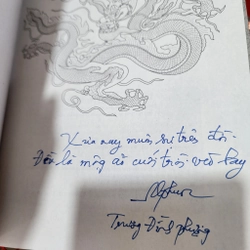 Xưa nay muôn sự trên đời
Đều là mộng ảo cuối trời
Trương Đình Phượng